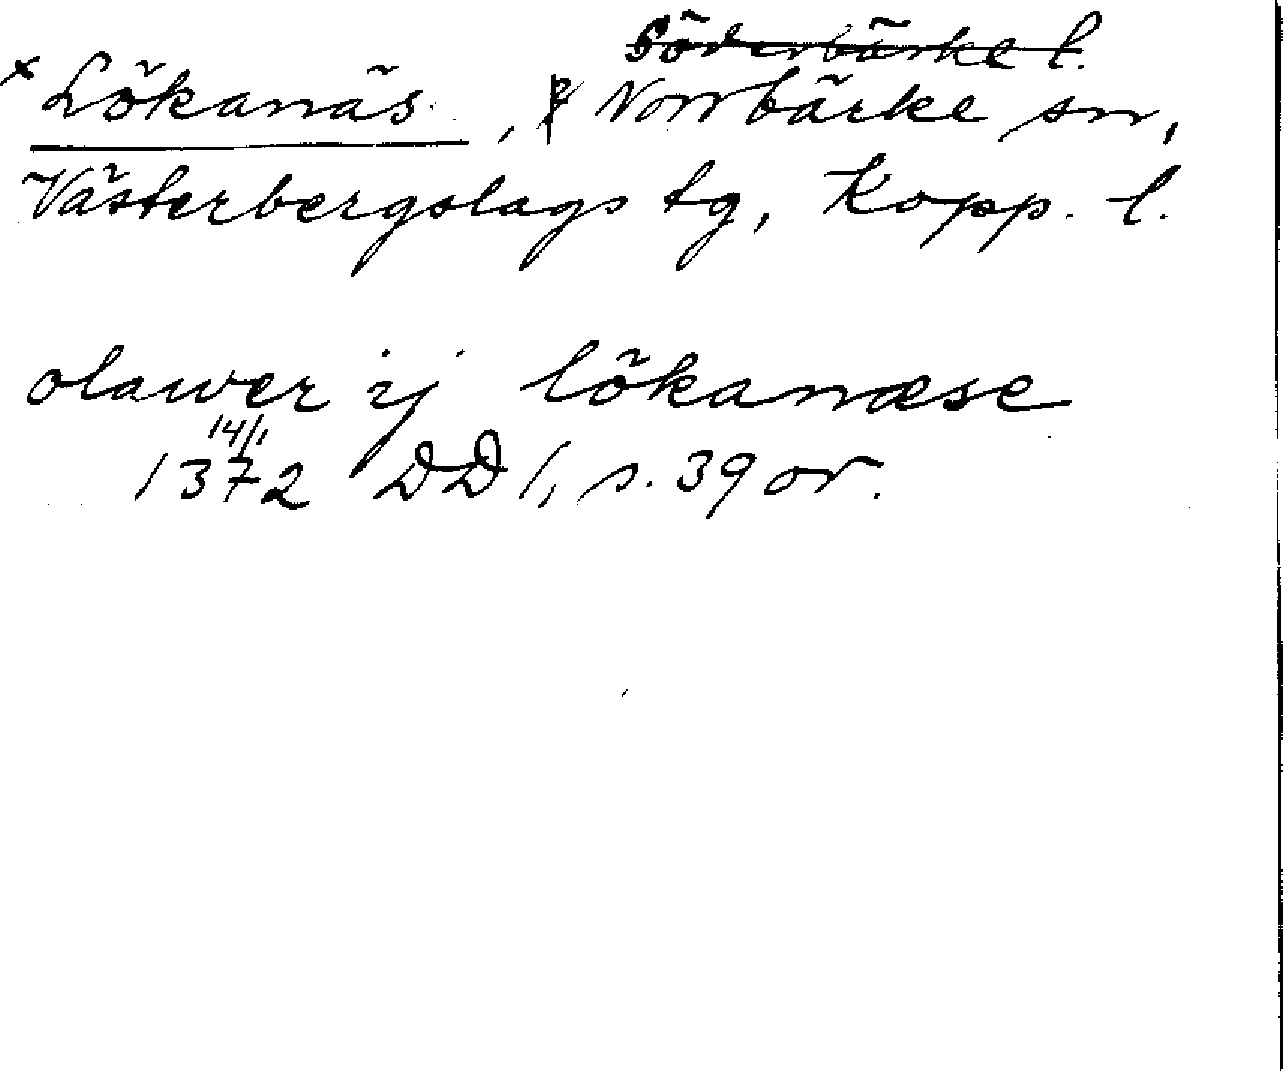 Söderbärke l.
× Lökanäs, Norrbärke sn,
Västerbergslags tg, Kopp. l.
olawer ij lökanæse
14/1
1372 DD 1, s. 39 or.